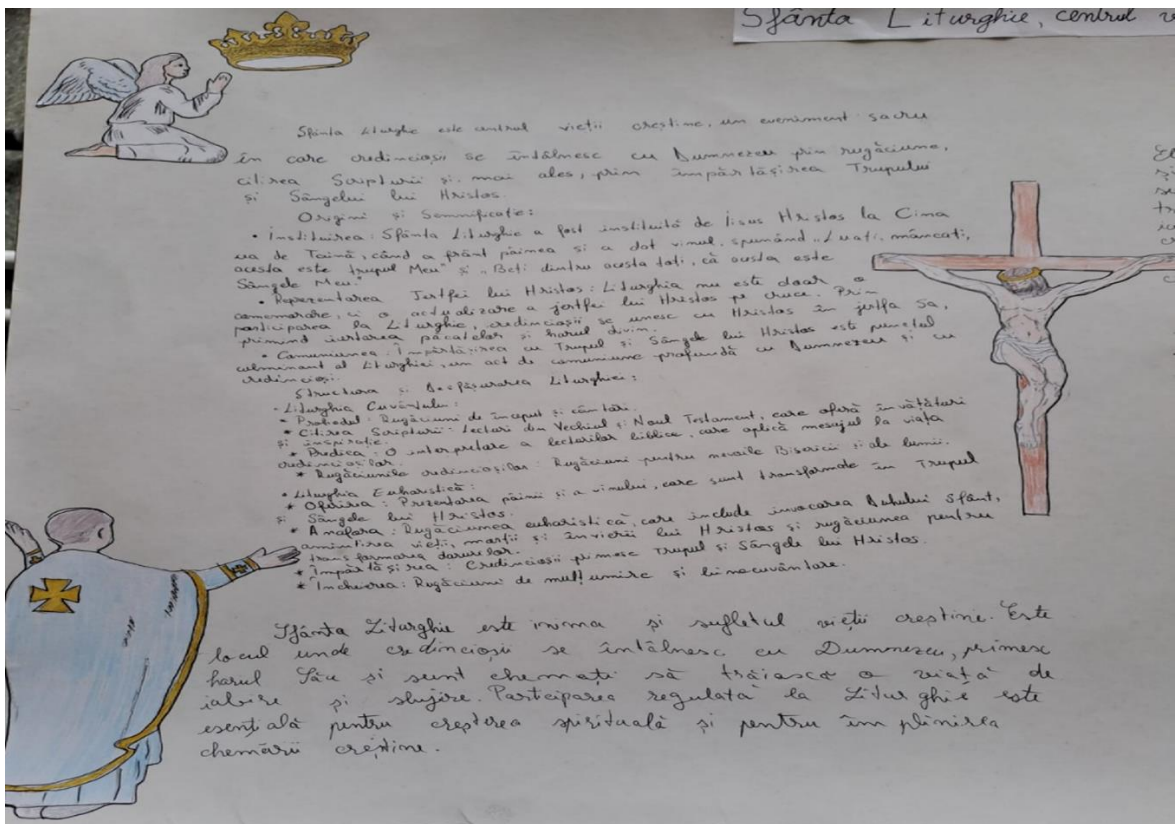 Sfânta Liturghie, centrul v
Sfânta Liturghe este centrul vieții creștine, un eveniment sacru
în care credincioșii se întâlnesc cu Dumnezeu prin rugăciune,
citirea Scripturii și, mai ales, prin împărtășirea Trupului
și Sângelui lui Hristos.
Origini și Semnificație:
• Instituirea: Sfânta Liturghie a fost instituită de Iisus Hristos la Cina
cea de Taină, când a frânt pâinea și a dat vinul, spunând „Luați, mâncați,
acesta este trupul Meu" și „Beți dintru acesta toți, că acesta este
Sângele Meu."
• Reprezentarea Jertfei lui Hristos: Liturghia nu este doar o
comemorare, ci o actualizare a jertfei lui Hristos pe cruce. Prin
participarea la Liturghie, credincioșii se unesc cu Hristos în jertfa Sa,
primind iertarea păcatelor și harul divin.
• Comuniunea: Împărtășirea cu Trupul și Sângele lui Hristos este punctul
culminant al Liturghiei, un act de comuniune profundă cu Dumnezeu și cu
credincioși.
Structura și Desfășurarea Liturghiei:
• Liturghia Cuvântului:
* Prohodul: Rugăciuni de început și cântări.
* Citirea Scripturii: Lecturi din Vechiul și Noul Testament, care oferă învățături
și inspirație.
* Predica: O interpretare a lecturilor biblice, care aplică mesajul la viața
credincioșilor.
* Rugăciunile credincioșilor: Rugăciuni pentru nevoile Bisericii și ale lumii.
• Liturghia Euharistică:
* Oferirea: Prezentarea pâinii și a vinului, care sunt transformate în Trupul
și Sângele lui Hristos.
* Anafora: Rugăciunea euharistică, care include invocarea Duhului Sfânt,
amintirea vieții, morții și învierii lui Hristos și rugăciunea pentru
transformarea darurilor.
* Împărtășirea: Credincioșii primesc Trupul și Sângele lui Hristos.
* Încheierea: Rugăciuni de mulțumire și binecuvântare.
Sfânta Liturghie este inima și sufletul vieții creștine. Este
locul unde credincioșii se întâlnesc cu Dumnezeu, primesc
harul Său și sunt chemați să trăiască o viață de
iubire și slujire. Participarea regulată la Liturghie este
esențială pentru creșterea spirituală și pentru împlinirea
chemării creștine.